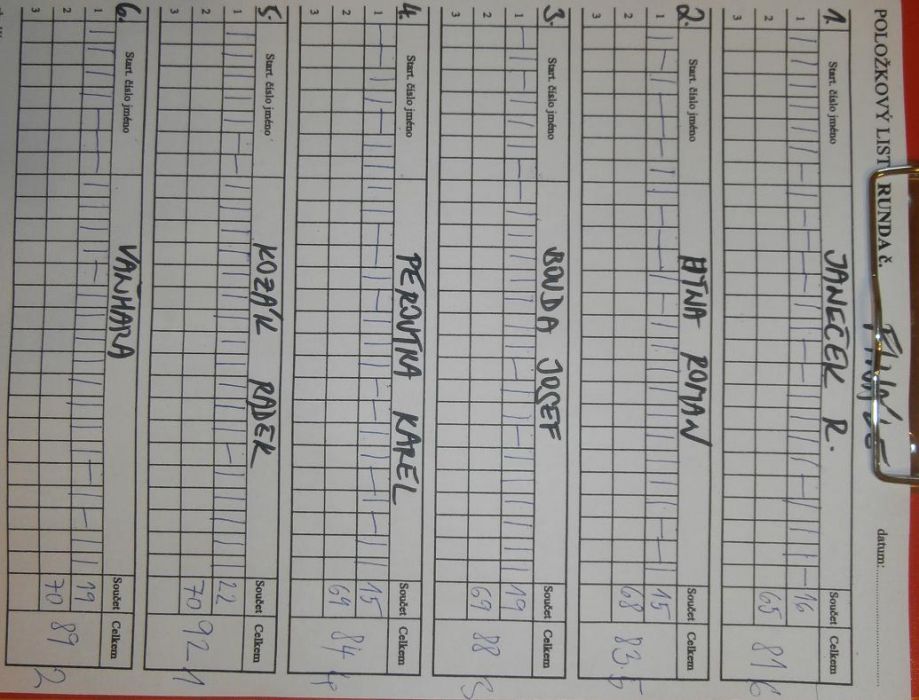 POLOŽKOVÝ LIST RUNDA č. FINÁLE datum:
1. Start. číslo jméno JANEČEK R. Součet Celkem
1 16
2 65 81 6
3
2. Start. číslo jméno HÝNA ROMAN Součet Celkem
1 15
2 68 83 5
3
3. Start. číslo jméno BOUDA JOSEF Součet Celkem
1 19
2 69 88 3
3
4. Start. číslo jméno PEROUTKA KAREL Součet Celkem
1 15
2 69 84 4
3
5. Start. číslo jméno KOZÁK RADEK Součet Celkem
1 22
2 70 92 1
3
6. Start. číslo jméno VAŇHARA Součet Celkem
1 19
2 70 89 2
3